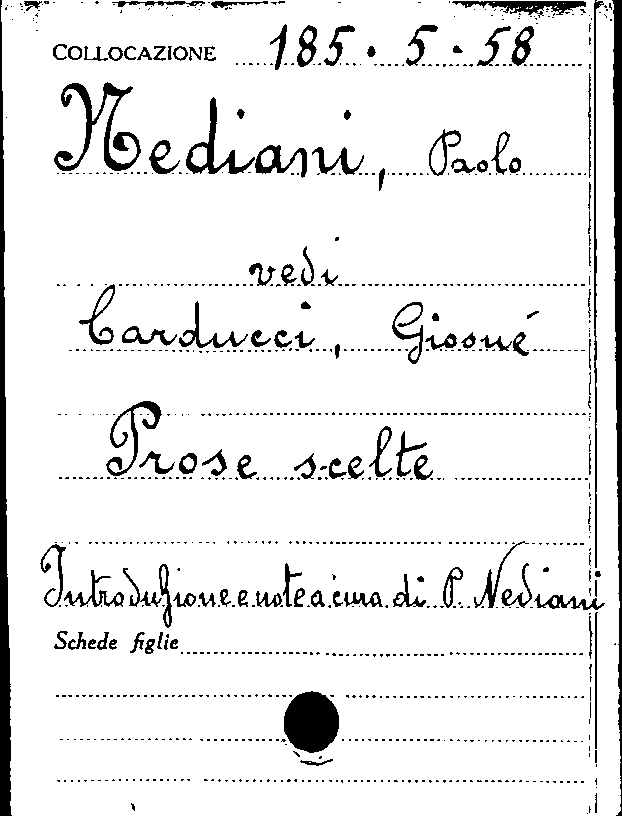 COLLOCAZIONE 185. 5. 58
Nediani, Paolo
vedi
Carducci, Giosué
Prose scelte
Introduzione e note a cura di P. Nediani
Schede figlie